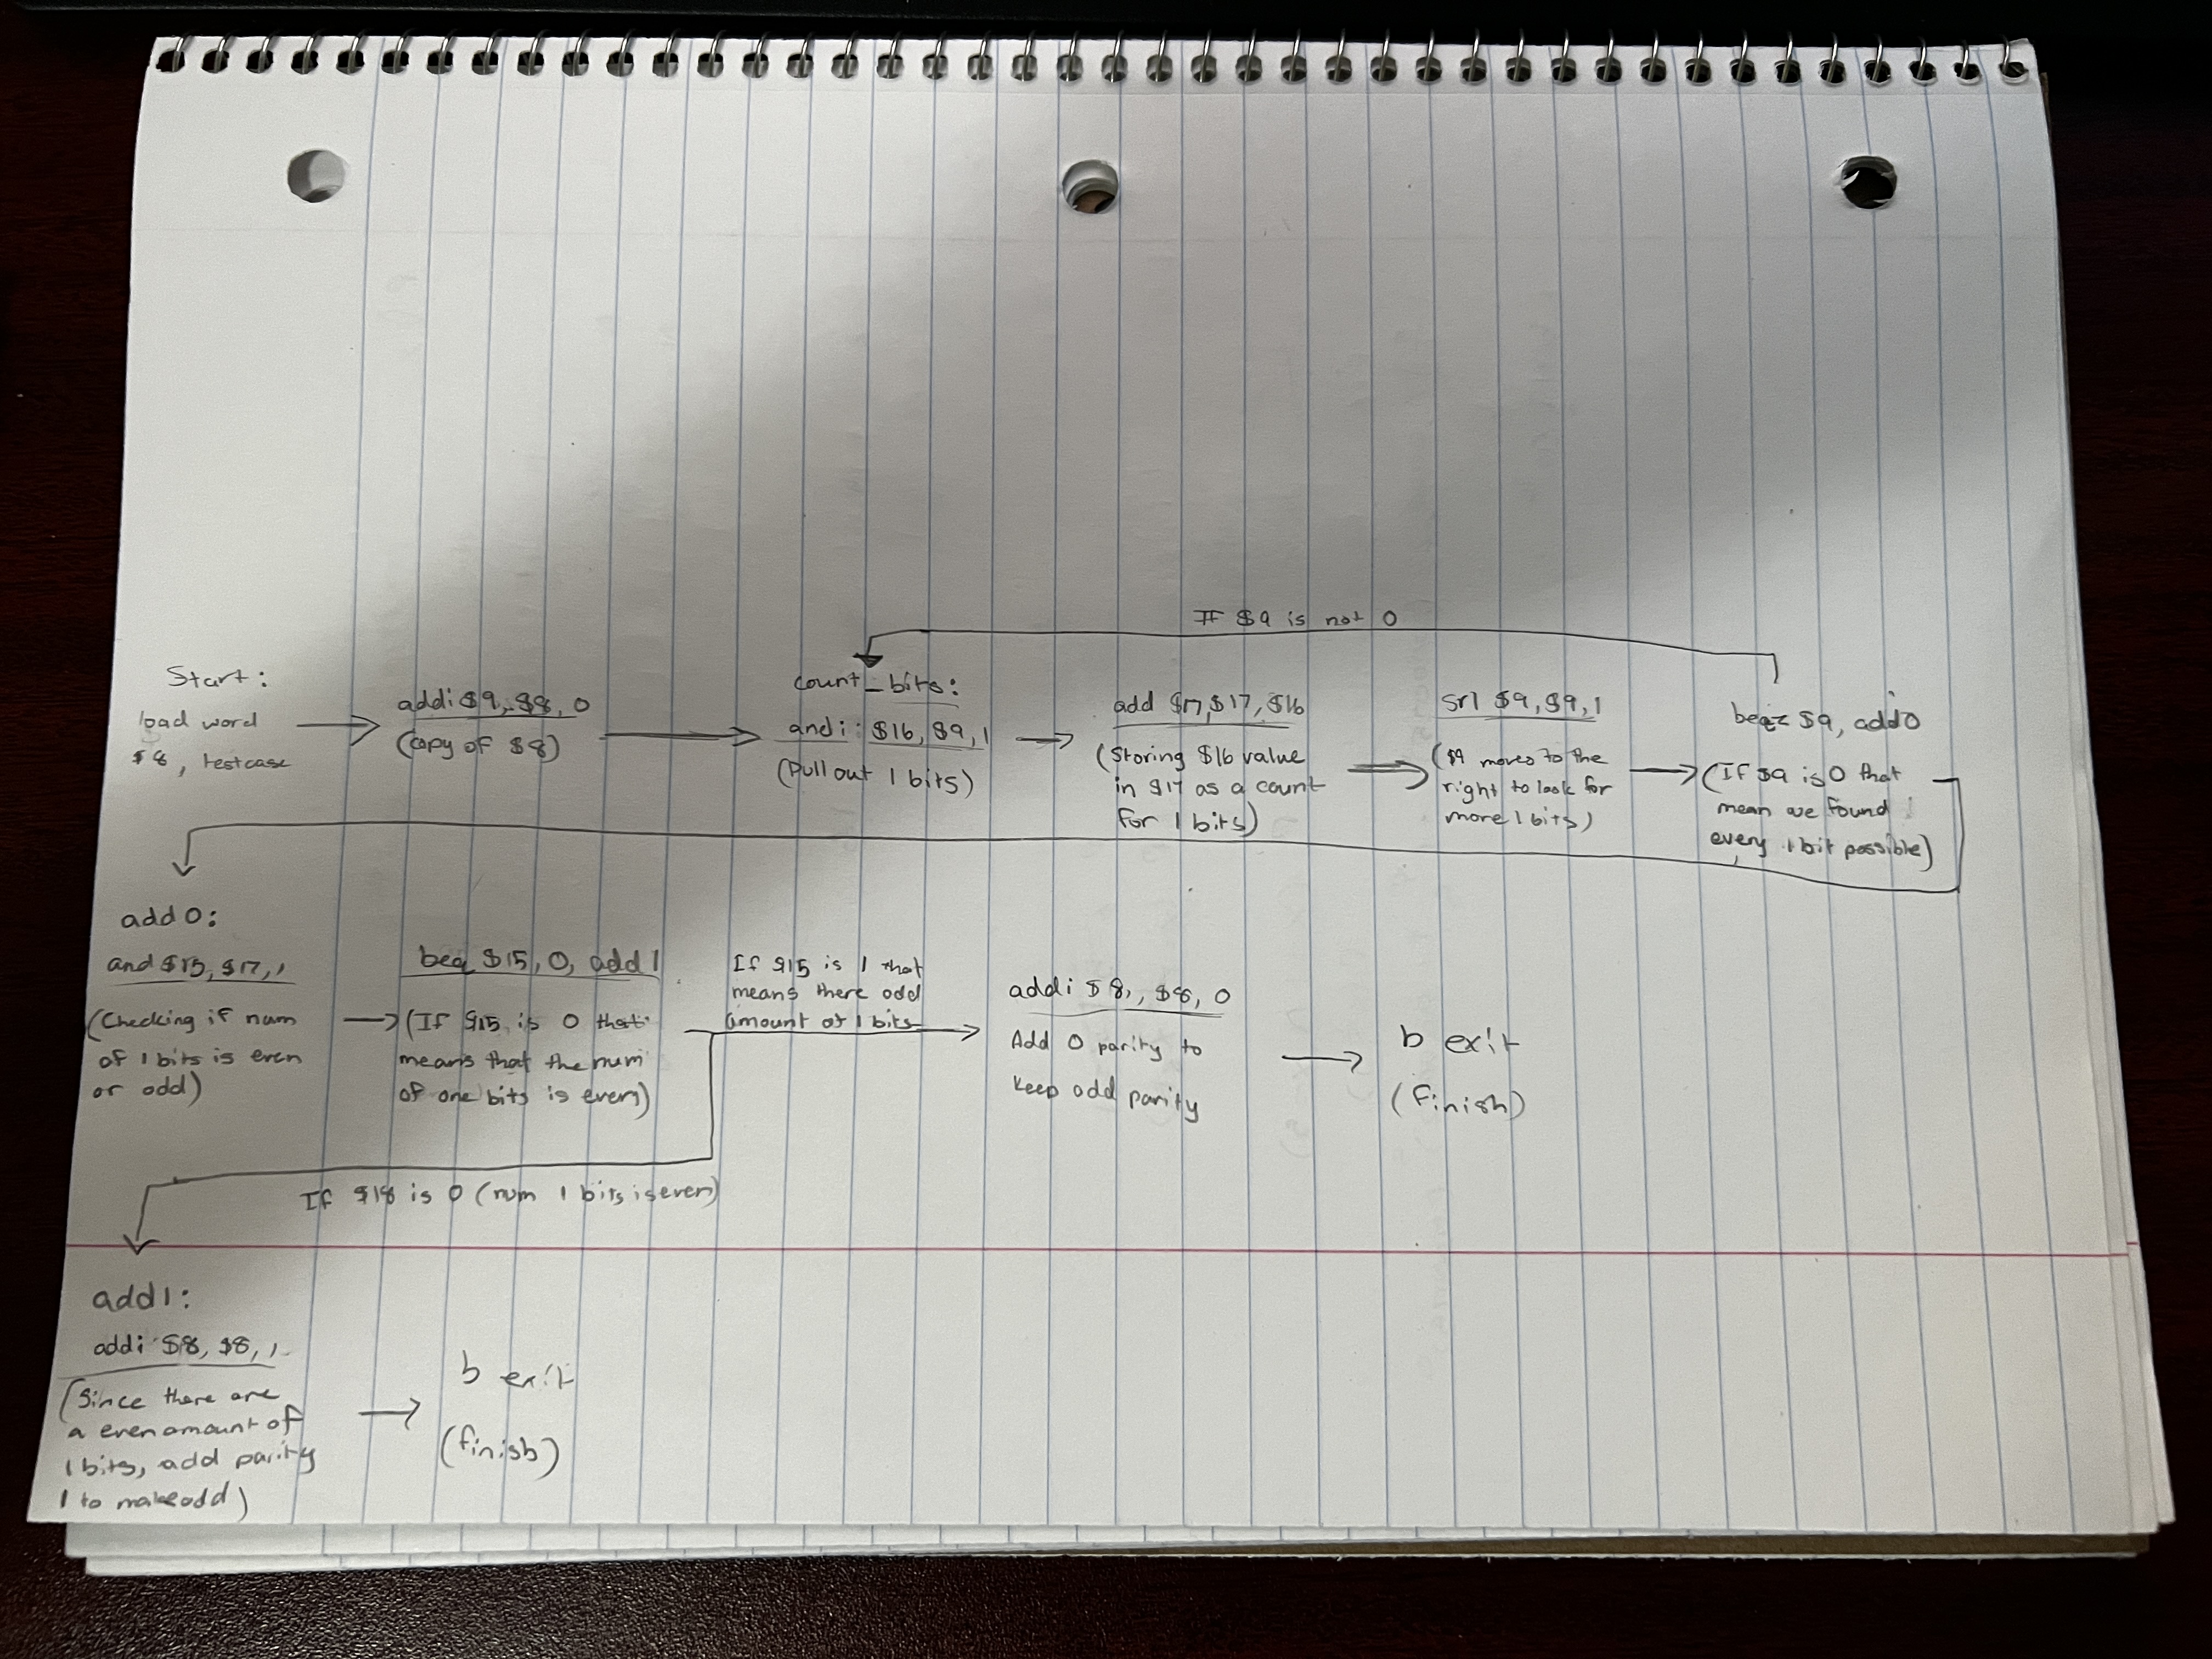 If $9 is not 0
Start:
load word
$8, testcase
addi $9, $8, 0
(copy of $8)
count_bits:
andi: $16, $9, 1
(Pull out 1 bits)
add $17, $17, $16
(Storing $16 value
in $17 as a count
for 1 bits)
srl $9, $9, 1
($9 moves to the
right to look for
more 1 bits)
beqz $9, add0
(If $9 is 0 that
mean we found
every 1 bit possible)
add0:
and $15, $17, 1
(Checking if num
of 1 bits is even
or odd)
beq $15, 0, add1
(If $15, is 0 that
means that the num
of one bits is even)
If $15 is 1 that
means there odd
amount of 1 bits
addi $8, $8, 0
Add 0 parity to
keep odd parity
b exit
(finish)
If $18 is 0 (num 1 bits is even)
add1:
addi $8, $8, 1
(Since there are
a even amount of
1 bits, add parity
1 to make odd)
b exit
(finish)